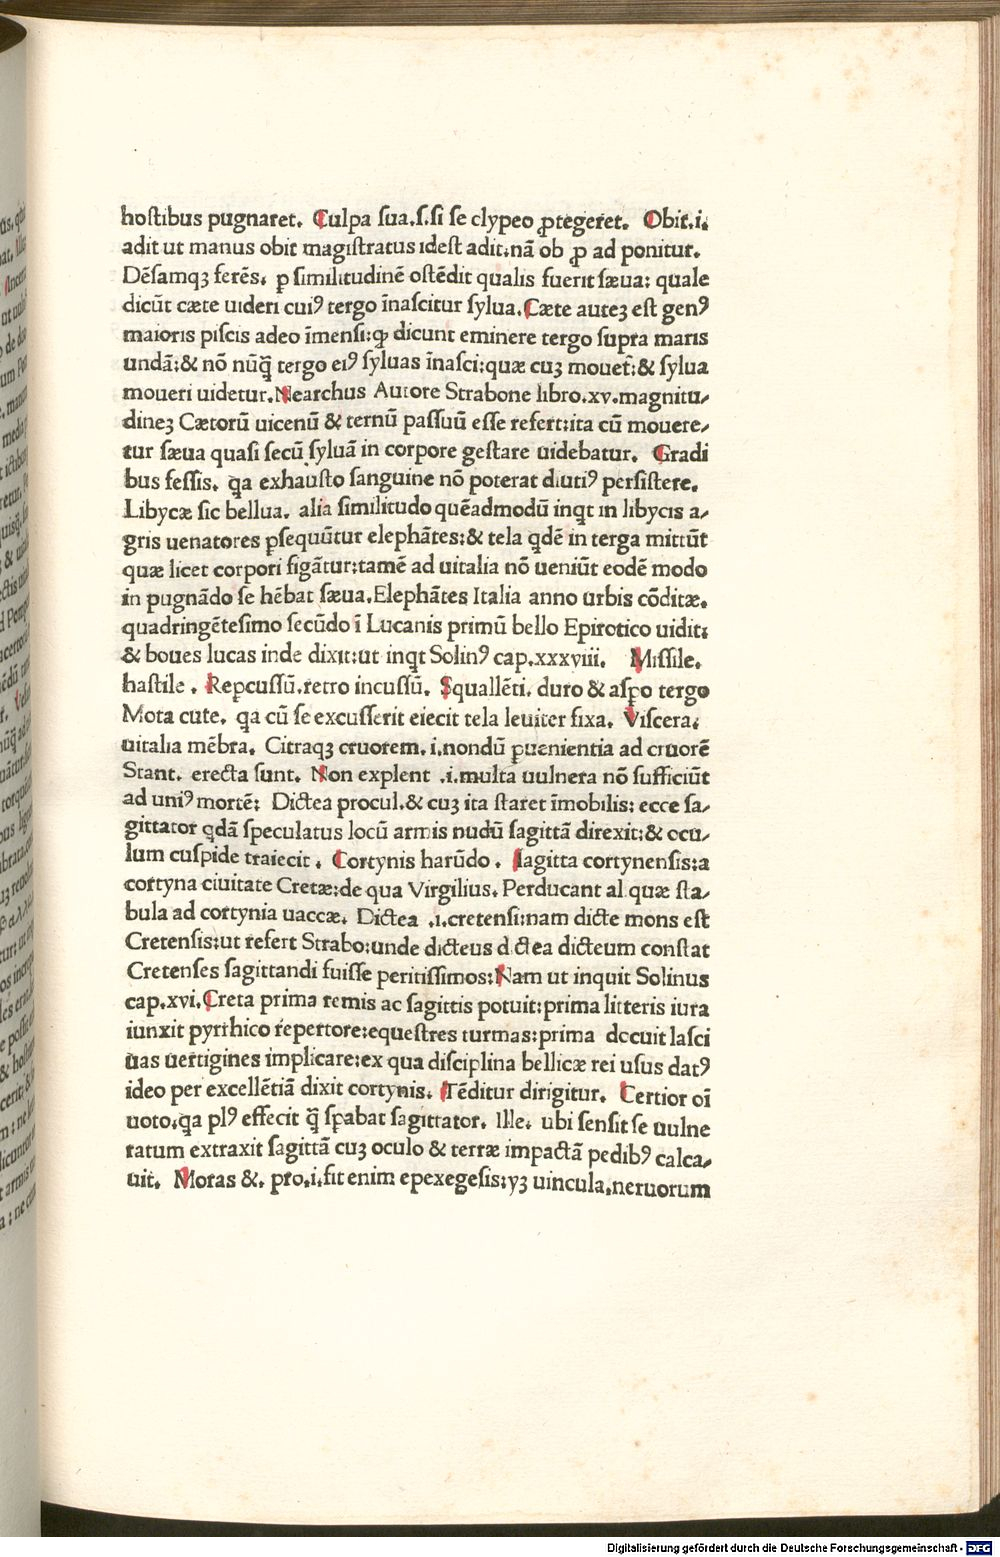 hoſtibus pugnaret. Culpa ſua.ſ.ſi ſe clypeo ꝓtegeret. Obit.i.
adit ut manus obit magiſtratus ideſt adit:nã ob ꝓ ad ponitur.
Dẽſamqꝫ ferẽs. p ſimilitudinẽ oſtẽdit qualis fuerit ſæua: quale
dicũt cæte uideri cuiꝰ tergo ĩnaſcitur ſylua. Cæte auteꝫ eſt genꝰ
maioris piſcis adeo ĩmenſi:ꝙ dicunt eminere tergo ſupra maris
undã:& nõ nũq̃ tergo eiꝰ ſyluas ĩnaſci:quæ cuꝫ mouet̃:& ſylua
moueri uidetur.Nearchus Autore Strabone libro.xv.magnitu⸗
dineꝫ Cætorũ uicenũ & ternũ paſſuũ eſſe refert:ita cũ mouere⸗
tur ſæua quaſi ſecũ ſyluã in corpore geſtare uidebatur. Gradi
bus feſſis. ꝗa exhauſto ſanguine nõ poterat diutiꝰ perſiſtere.
Libycæ ſic bellua. alia ſimilitudo quẽadmodũ inꝗt in libycis a⸗
gris uenatores ꝑſequũtur elephãtes:& tela ꝗdẽ in terga mittũt
quæ licet corpori figãtur:tamẽ ad uitalia nõ ueniũt eodẽ modo
in pugnãdo ſe hẽbat ſæua.Elephãtes Italia anno urbis cõditæ.
quadringẽteſimo ſecũdo ĩ Lucanis primũ bello Epirotico uidit:
& boues lucas inde dixit:ut inꝗt Solinꝰ cap.xxxviii. Miſſile.
haſtile . Repcuſſũ.retro incuſſũ. Squallẽti. duro & aſꝑo tergo
Mota cute. ꝗa cũ ſe excuſſerit eiecit tela leuiter fixa. Viſcera.
uitalia mẽbra. Citraqꝫ cruorem.i.nondũ ꝑuenientia ad cruorẽ
Stant. erecta ſunt. Non explent .i.multa uulnera nõ ſufficiũt
ad uniꝰ mortẽ: Dictea procul.& cuꝫ ita ſtaret ĩmobilis: ecce ſa⸗
gittator ꝗdã ſpeculatus locũ armis nudũ ſagittã direxit:& ocu⸗
lum cuſpide traiecit . Cortynis harũdo . ſagitta cortynenſis:a
cortyna ciuitate Cretæ:de qua Virgilius.Perducant al quæ ſta⸗
bula ad cortynia uaccæ. Dictea .i.cretenſi:nam dicte mons eſt
Cretenſis:ut refert Strabo:unde dicteus d.ctea dicteum conſtat
Cretenſes ſagittandi fuiſſe peritiſſimos:Nam ut inquit Solinus
cap.xvi.Creta prima remis ac ſagittis potuit:prima litteris iura
iunxit pyrrhico repertore:equeſtres turmas:prima docuit laſci
uas uertigines implicare:ex qua diſciplina bellicæ rei uſus datꝰ
ideo per excellẽtiã dixit cortynis. Tẽditur dirigitur. Certior oĩ
uoto.ꝗa plꝰ effecit q̃ ſꝑabat ſagittator. Ille. ubi ſenſit ſe uulne
ratum extraxit ſagittã cuꝫ oculo & terræ impactã pedibꝰ calca⸗
uit. Moras &. pro.i.fit enim epexegeſis:yꝫ uincula.neruorum
Digitalisierung gefördert durch die Deutsche Forschungsgemeinschaft - DFG